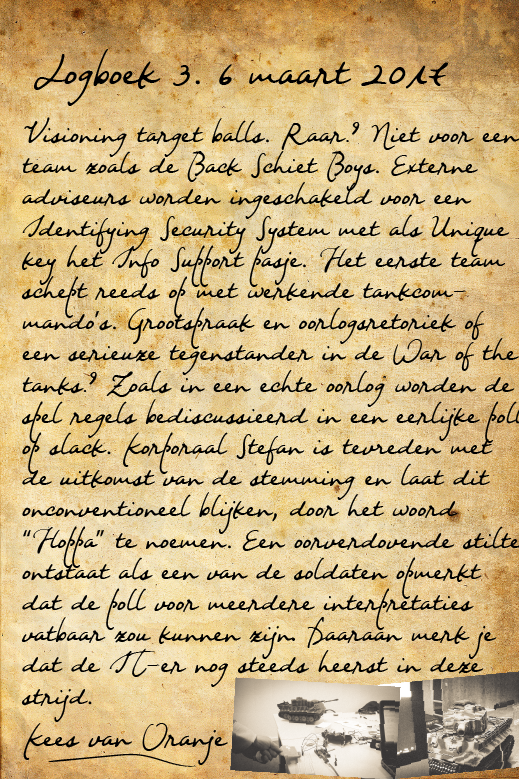 Logboek 3. 6 maart 2017
Visioning target balls. Raar.? Niet voor een
team zoals de Back Schiet Boys. Externe
adviseurs worden ingeschakeld voor een
Identifying Security System met als Unique
key het Info Support pasje. Het eerste team
schept reeds op met werkende tankcom-
mando's. Grootspraak en oorlogsretoriek of
een serieuze tegenstander in de War of the
tanks.? Zoals in een echte oorlog worden de
spel regels bediscussieerd in een eerlijke poll
op slack. Korporaal Stefan is tevreden met
de uitkomst van de stemming en laat dit
onconventioneel blijken, door het woord
"Hoppa" te noemen. Een oorverdovende stilte
ontstaat als een van de soldaten opmerkt
dat de poll voor meerdere interpretaties
vatbaar zou kunnen zijn. Daaraan merk je
dat de IT-er nog steeds heerst in deze
strijd.
Kees van Oranje